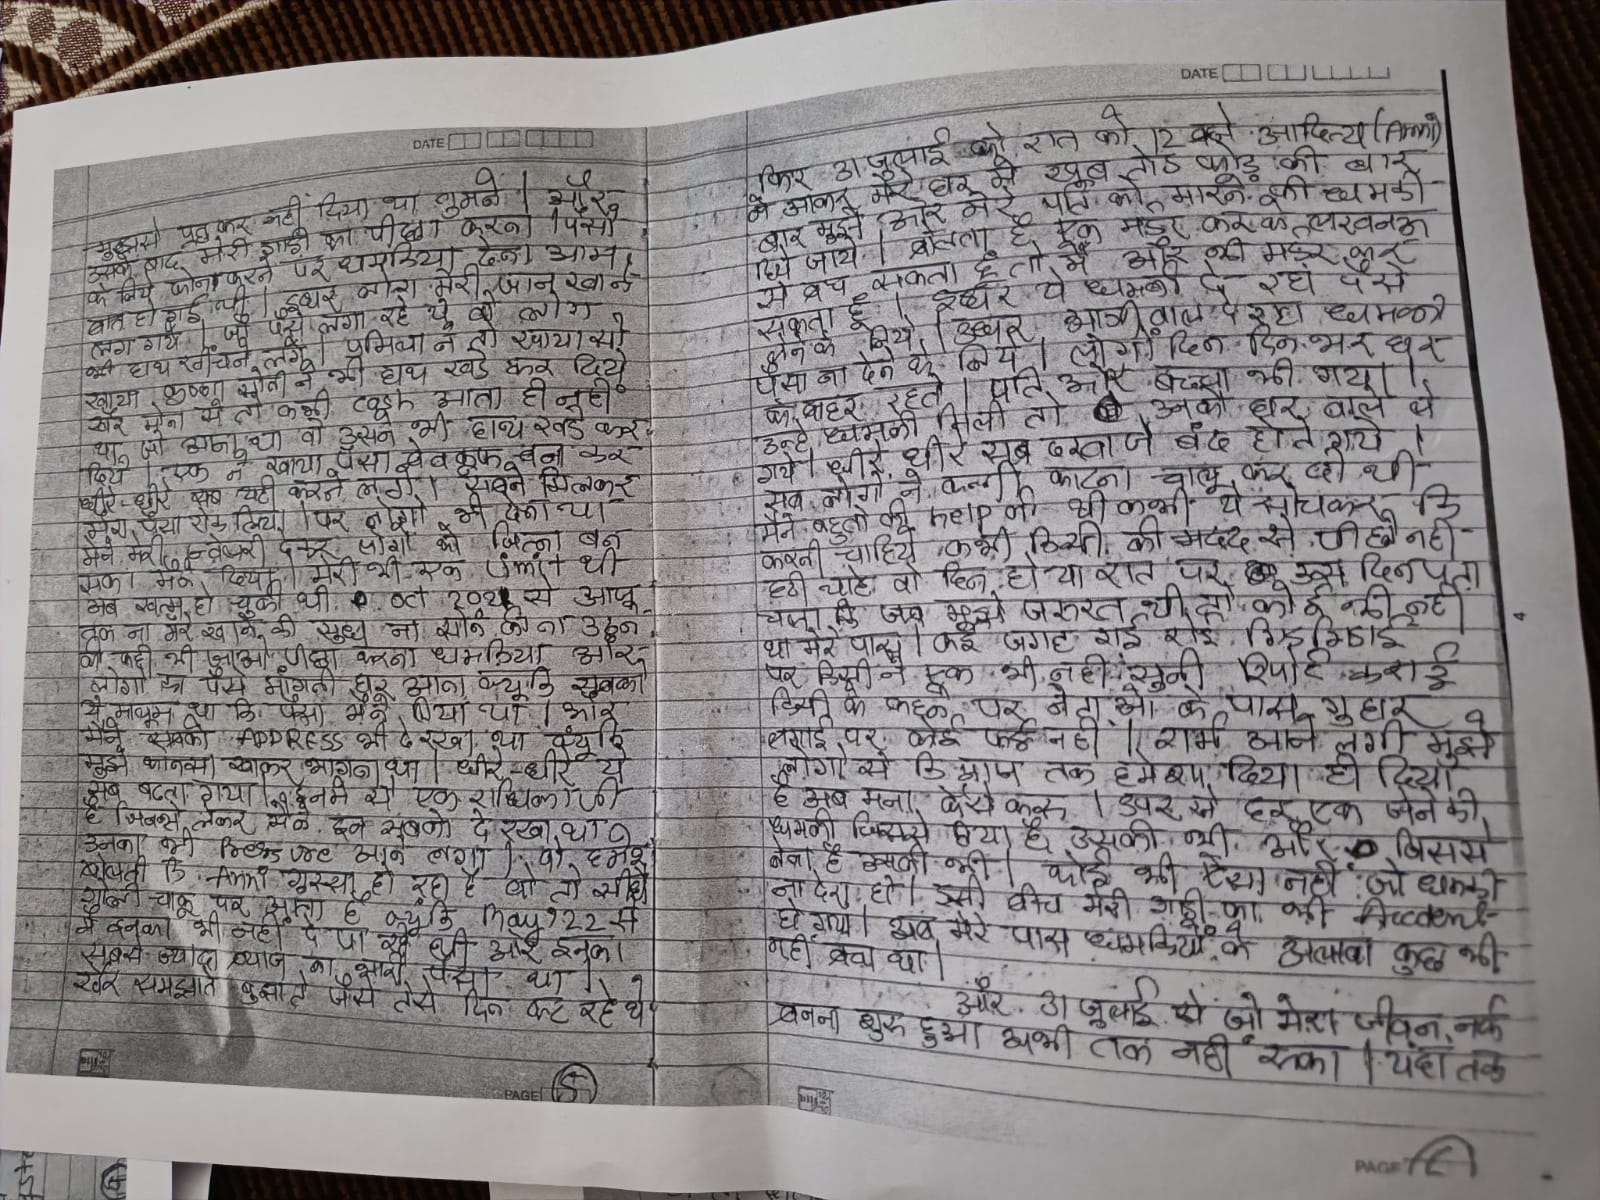 DATE
मुझसे पूछ कर नहीं दिया था तुमने । और
उसके बाद मेरी गाड़ी का पीछा करना । पैसो
के लिये फोन करने पर धमकिया देना आम
बात हो गई थी । इधर लोग मेरी जान खाने
लग गये । जो पैसे लगा रहे थे वो लोग
भी हाथ खींचने लगे । ने तो खाया सो
खाया कृष्णा सोनी ने भी हाथ खडे कर दिये
खैर मोना से तो कभी आता ही नहीं
था जो आना था वो उसने भी हाथ खडे कर
दिये । एक ने खाया पैसा बेवकूफ बना कर
धीरे-धीरे सब यही करने लगे । सबने मिलकर
मेरा पैसा रोक लिया । पर लोगो को भी देना था
मैने मेरी देकर लोगो को जितना बन
सका मैने दिया । मेरी भी एक limit थी
अब खत्म हो चुकी थी । oct 2021 से आज
तक ना मेरे खाने की सुध ना सोने की ना उठने
की कही भी जाओ पीछा करना धमकिया और
लोगो का पैसे मांगती घर आना क्यूकि सबको
ये मालूम था कि पैसा मैने लिया था । और
मैने सबको ADDRESS भी दे रखा था क्यूकि
मुझे कौनसा खाकर भागना था । धीरे-धीरे ये
सब बढता गया । इनमे से एक राधिका जी
है जिनसे लेकर मैने इन सबको दे रखा था
उनका भी Pressure आने लगा । वो हमेशा
बोलती कि Annu गुस्सा हो रहा है वो तो सीधे
गोली चाकू पर आता है क्यूकि May 22 से
मै इनका भी नहीं दे पा रही थी और इनका
सबसे ज्यादा ब्याज का भारी पैसा था ।
खैर समझाते बुझाते जैसे तैसे दिन कट रहे थे
PAGE 5
DATE
फिर 31 जुलाई को रात को 12 बजे आदित्य (Annu)
ने आकर मेरे घर मे खूब तोड फोड की बार
बार मुझे और मेरे पति को मारने की धमकी
दिये जाये । बोलता है एक मर्डर करके लखनऊ
से बच सकता हूं तो मै और भी मर्डर कर
सकता हूं । इधर ये धमकी दे रहे पैसे
लेने के लिये । उधर वाले दे रहे धमकी
पैसा ना देने के लिये । लोगो दिन दिन भर घर
के बाहर रहते । पति और बदला भी गया ।
उन्हे धमकी मिली तो उनके घर वाले थे
गये । धीरे धीरे सब दरवाजे बंद होते गये ।
सब लोगो ने कन्नी काटना चालू कर दी थी
मैने बहुतो की help की थी कभी ये सोचकर कि
करनी चाहिये कभी किसी की मदद से पीछे नही
हटी चाहे वो दिन हो या रात पर उस दिन पता
चला कि जब मुझे जरुरत थी तो कोई भी नही
था मेरे पास । कई जगह गई रोई गिडगिडाई
पर किसी ने एक भी नही सुनी रिपोर्ट कराई
किसी के कहने पर नेताओ के पास गुहार
लगाई पर कोई फर्क नही । शर्म आने लगी मुझे
लोगो से कि आज तक हमेशा दिया ही दिया
है अब मना कैसे करू । उपर से हर एक जने की
धमकी जिससे लिया है उसकी भी और जिससे
लेना है उसकी भी । कोई भी ऐसा नही जो धमकी
ना देरा हो । इसी बीच मेरी गाडी का भी Accident
हो गया । अब मेरे पास धमकियो के अलावा कुछ भी
नही बचा था ।
और 31 जुलाई से जो मेरा जीवन नर्क
बनना शुरु हुआ अभी तक नही रुका । यहां तक
PAGE 6